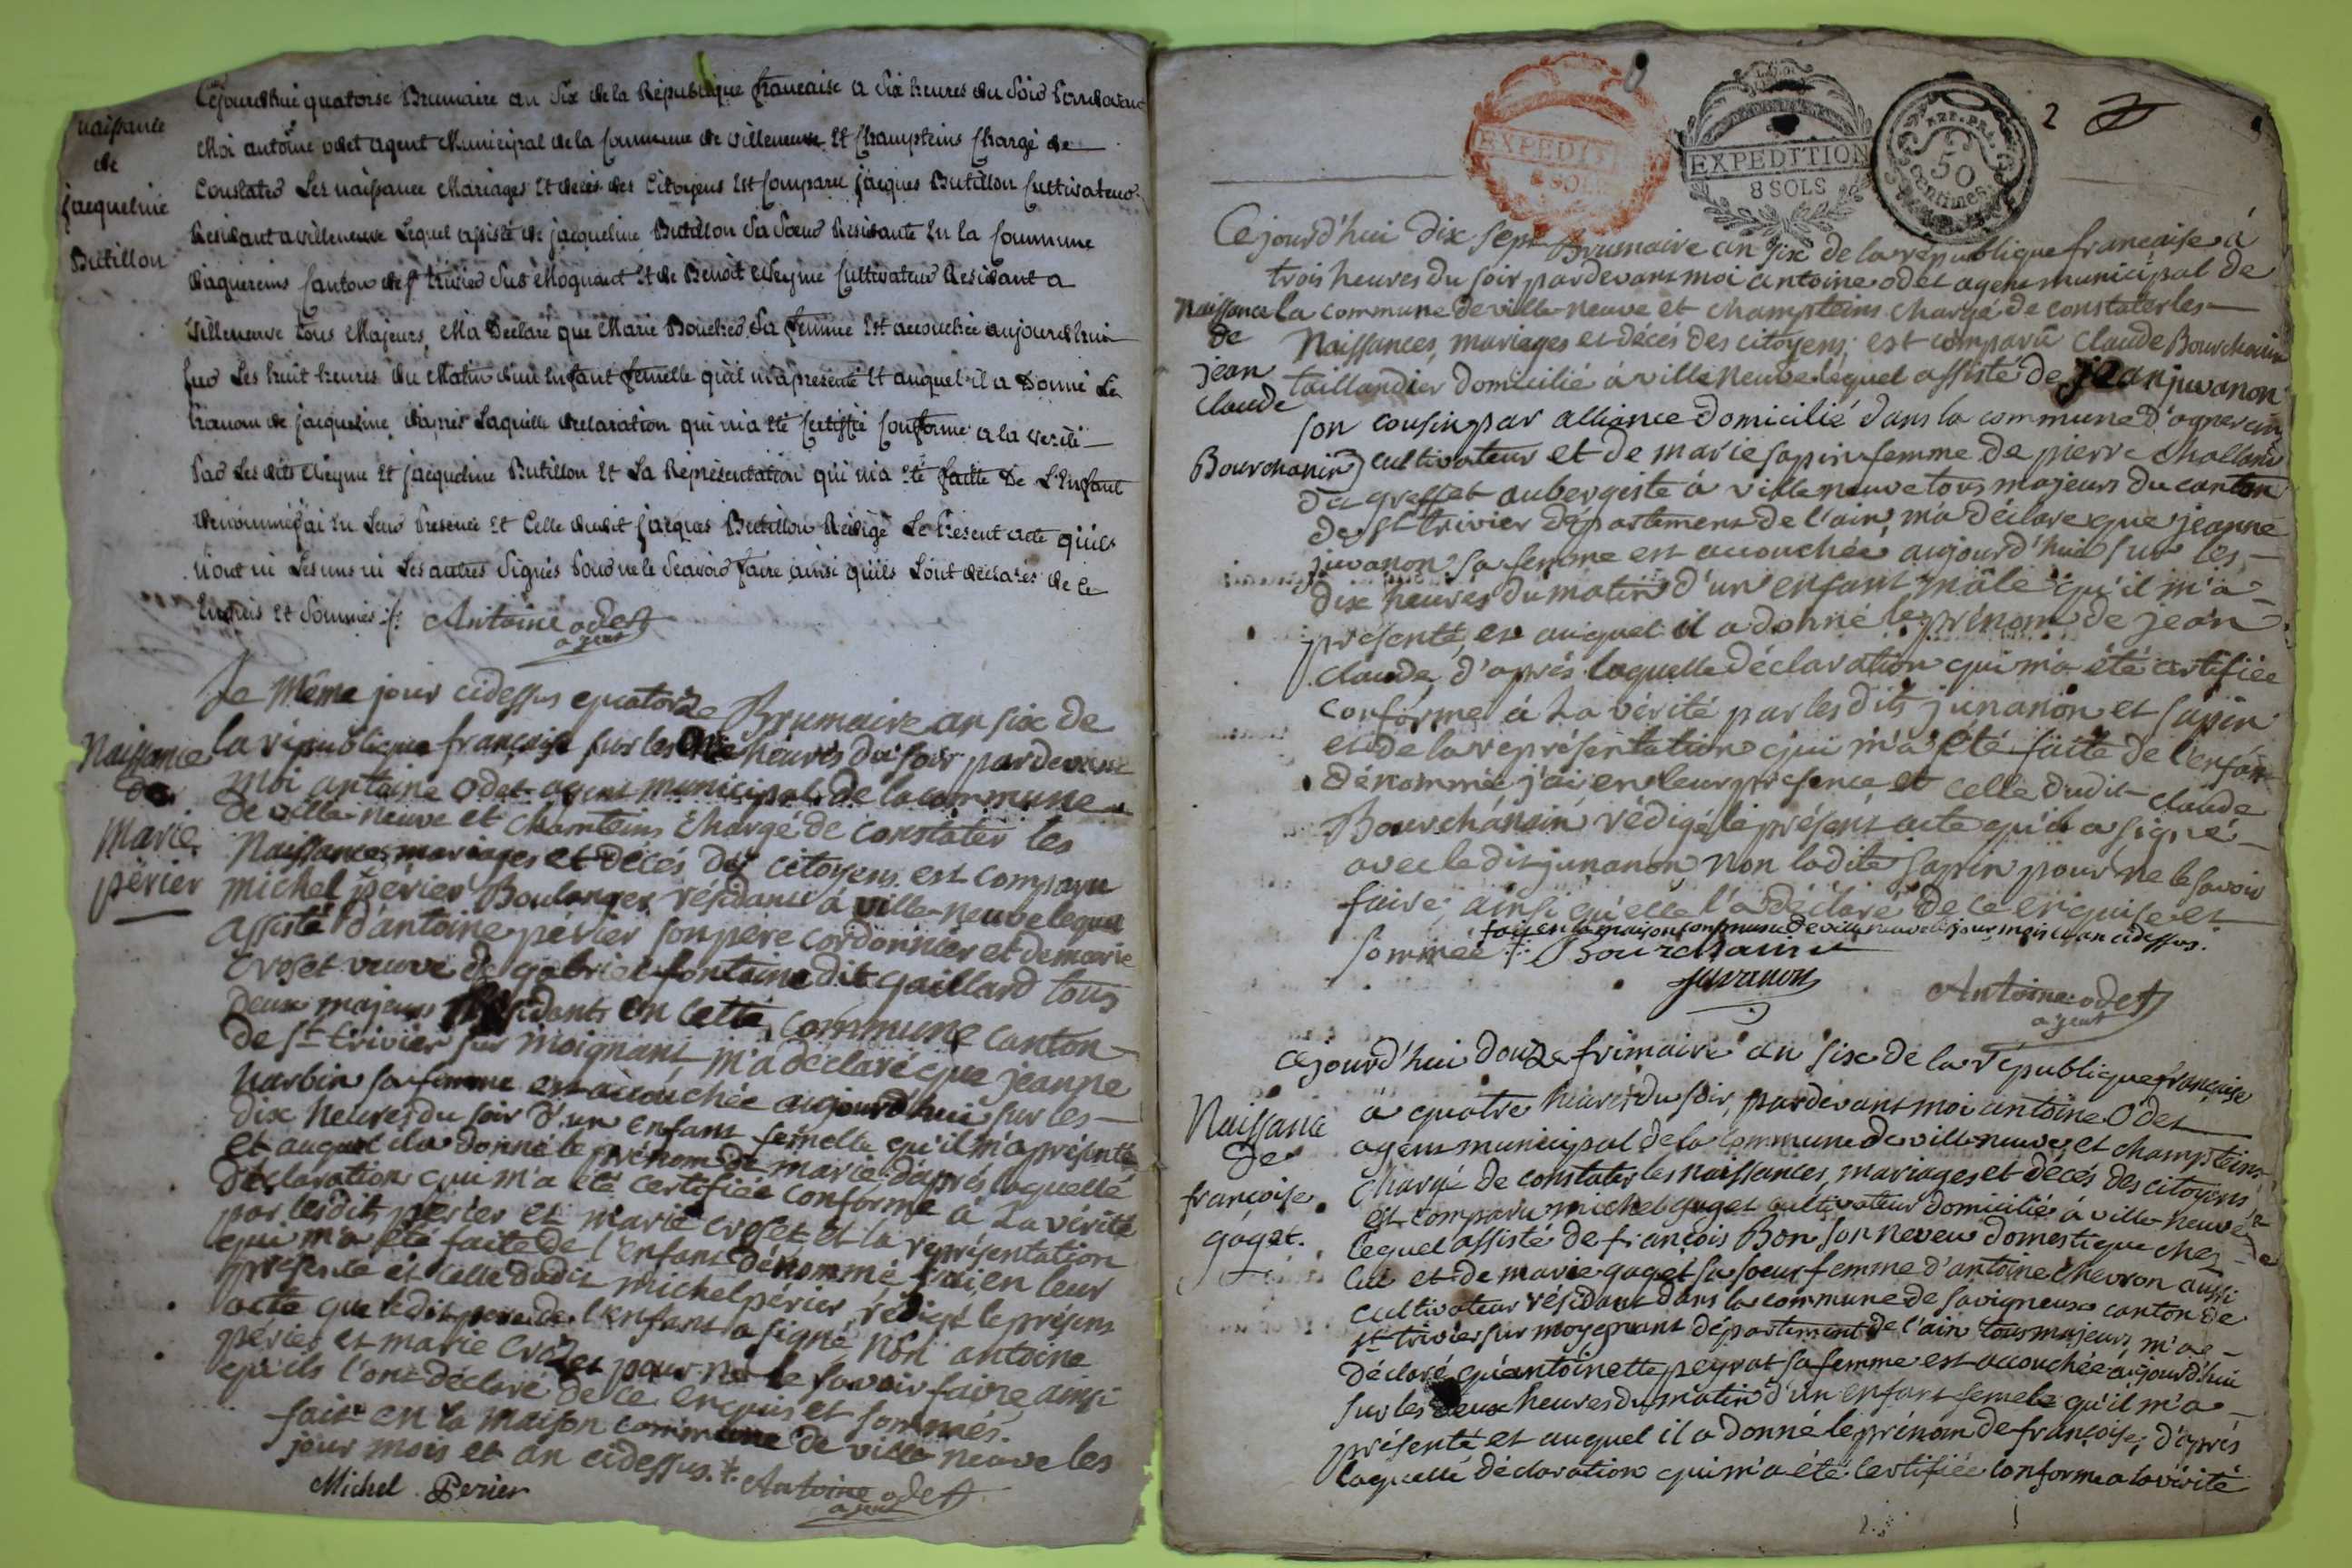 naissance
de
jacqueline
Butillon
Cejourdhui quatorse Brumaire an Six de la Republique francaise a Six heures du Soir Pardevant
Moi antoine odet agent Municipal de la Commune de villeneuve Et Champteins Chargé de
Constater Les naissance Mariages Et deces des Citoyens Est Comparu jacques Butillon Cultivateur
Residant a villeneuve Lequel assisté de jacqueline Butillon Sa Sœur Residante En la Commune
daquereins Canton de St trivier Sur Mognant Et de Benoit Cheyne Cultivateur Residant a
Villeneuve tous Majeurs, Ma Declaré que Marie Boucher Sa femme Est accouchée aujourdhui
Sur Les huit heures du Matin d'un Enfant femelle qu'il m'a presenté Et auquel il a Donné Le
Prenom de jacqueline, d'apres Laquelle declaration qui m'a Eté Certiffié Conforme a la verité
Par Les dits Cheyne Et jacqueline Butillon Et La Representation qui m'a Eté faitte De L'Enfant
denommé j'ai En Leur Presence Et Celle dudit jacques Butillon Redigé Le Present acte qu'ils
n'ont ni Les uns ni Les autres Signés Pour ne le Scavoir faire ainsi qu'ils L'ont déclarés de Ce
Enquis Et Sommés ./. Antoine odet
agent
Naissance
de
marie
périer
Le même jour cidessus quatorze Brumaire an six de
la république française sur les onze heures du soir pardevant
moi antoine odet agent municipal de la commune
de ville-neuve et chamteins chargé de constater les
Naissances mariages et décés des citoyens est comparu
michel périer Boulanger résidant à ville-neuve lequel
assisté d'antoine périer son père cordonnier et de marie
croset veuve de gabriel fontaine dit gaillard tous
deux majeurs résidants en cette commune canton
de st trivier sur moignant, m'a déclaré que jeanne
narbin sa femme est accouchée aujourd'hui sur les
dix heures du soir d'un enfant femelle qu'il m'a présenté
et auquel il a donné le prénom de marie d'aprés laquelle
déclaration qui m'a été certifiée conforme à la vérité
par lesdits périer et marie croset et la représentation
qui m'a été faite de l'enfant dénommé, j'ai en leur
présence et celle dudit michel périer, rédigé le présent
acte que ledit pere de l'enfant a signé non antoine
périer et marie crozet pour ne le savoir faire ainsi
qu'ils l'ont déclaré de ce enquis et sommés.
fait en la maison commune de ville neuve les
jour mois et an cidessus. Antoine odet
agent
Michel Perier
EXPEDITION
8 SOLS
LA LOI
EXPEDITION
8 SOLS
50
centimes
2
Naissance
de
jean
claude
Bourchanin
Ce jourd'hui dix sept Brumaire an six de la république francaise à
trois heures du soir pardevant moi antoine odet agent municipal de
la commune de ville-neuve et champteins chargé de constater les
Naissances, mariages et décés des citoyens, est comparû claude Bourchanin
taillandier domicilié à ville neuve lequel assisté de jean juvanon
son cousin par alliance domicilié dans la commune d'agnereins
cultivateur et de marie sapin femme de pierre challand
du greffet aubergiste à ville neuve tous majeurs du canton
de st trivier département de l'ain, m'a déclaré que jeanne
juvanon sa femme est accouchée aujourd'hui sur les
dix heures du matin d'un enfant mâle qu'il m'a
présenté, et auquel il a donné le prénom de jean
claude, d'aprés laquelle déclaration qui m'a été certifiée
conforme à la vérité par lesdits junanon et sapin
et de la représentation qui m'a été faite de l'enfant
dénommé j'ai en leur presence et celle dudit claude
Bourchanin rédigé le présent acte qu'il a signé
avec ledit junanon non ladite sapin pour ne le savoir
faire, ainsi qu'elle l'a déclaré de ce enquise et
fait en la maison commune de ville neuve les jour mois et an cidessus.
sommée ./. Bourchanin
juvanon
Antoine odet
agent
Naissance
de
françoise
gaget.
Cejourd'hui douze frimaire an six de la république française
à quatre heures du soir, pardevant moi antoine Odet
agent municipal de la commune de ville neuve et champteins
chargé de constater les naissances, mariages et décés des citoyens
est comparu michel gaget cultivateur domicilié à ville-neuve
lequel assisté de françois Bon son neveu domestique chez
lui et de marie gaget sa soeur femme d'antoine chevron aussi
cultivateur résidant dans la commune de savigneux canton de
st trivier sur moyegnant département de l'ain tous majeurs m'a
déclaré qu'antoinette peyrat sa femme est accouchée aujourd'hui
sur les deux heures du matin d'un enfant femele qu'il m'a
présenté et auquel il a donné le prénom de françoise; d'aprés
laquelle déclaration qui m'a été certifiée conforme à la vérité